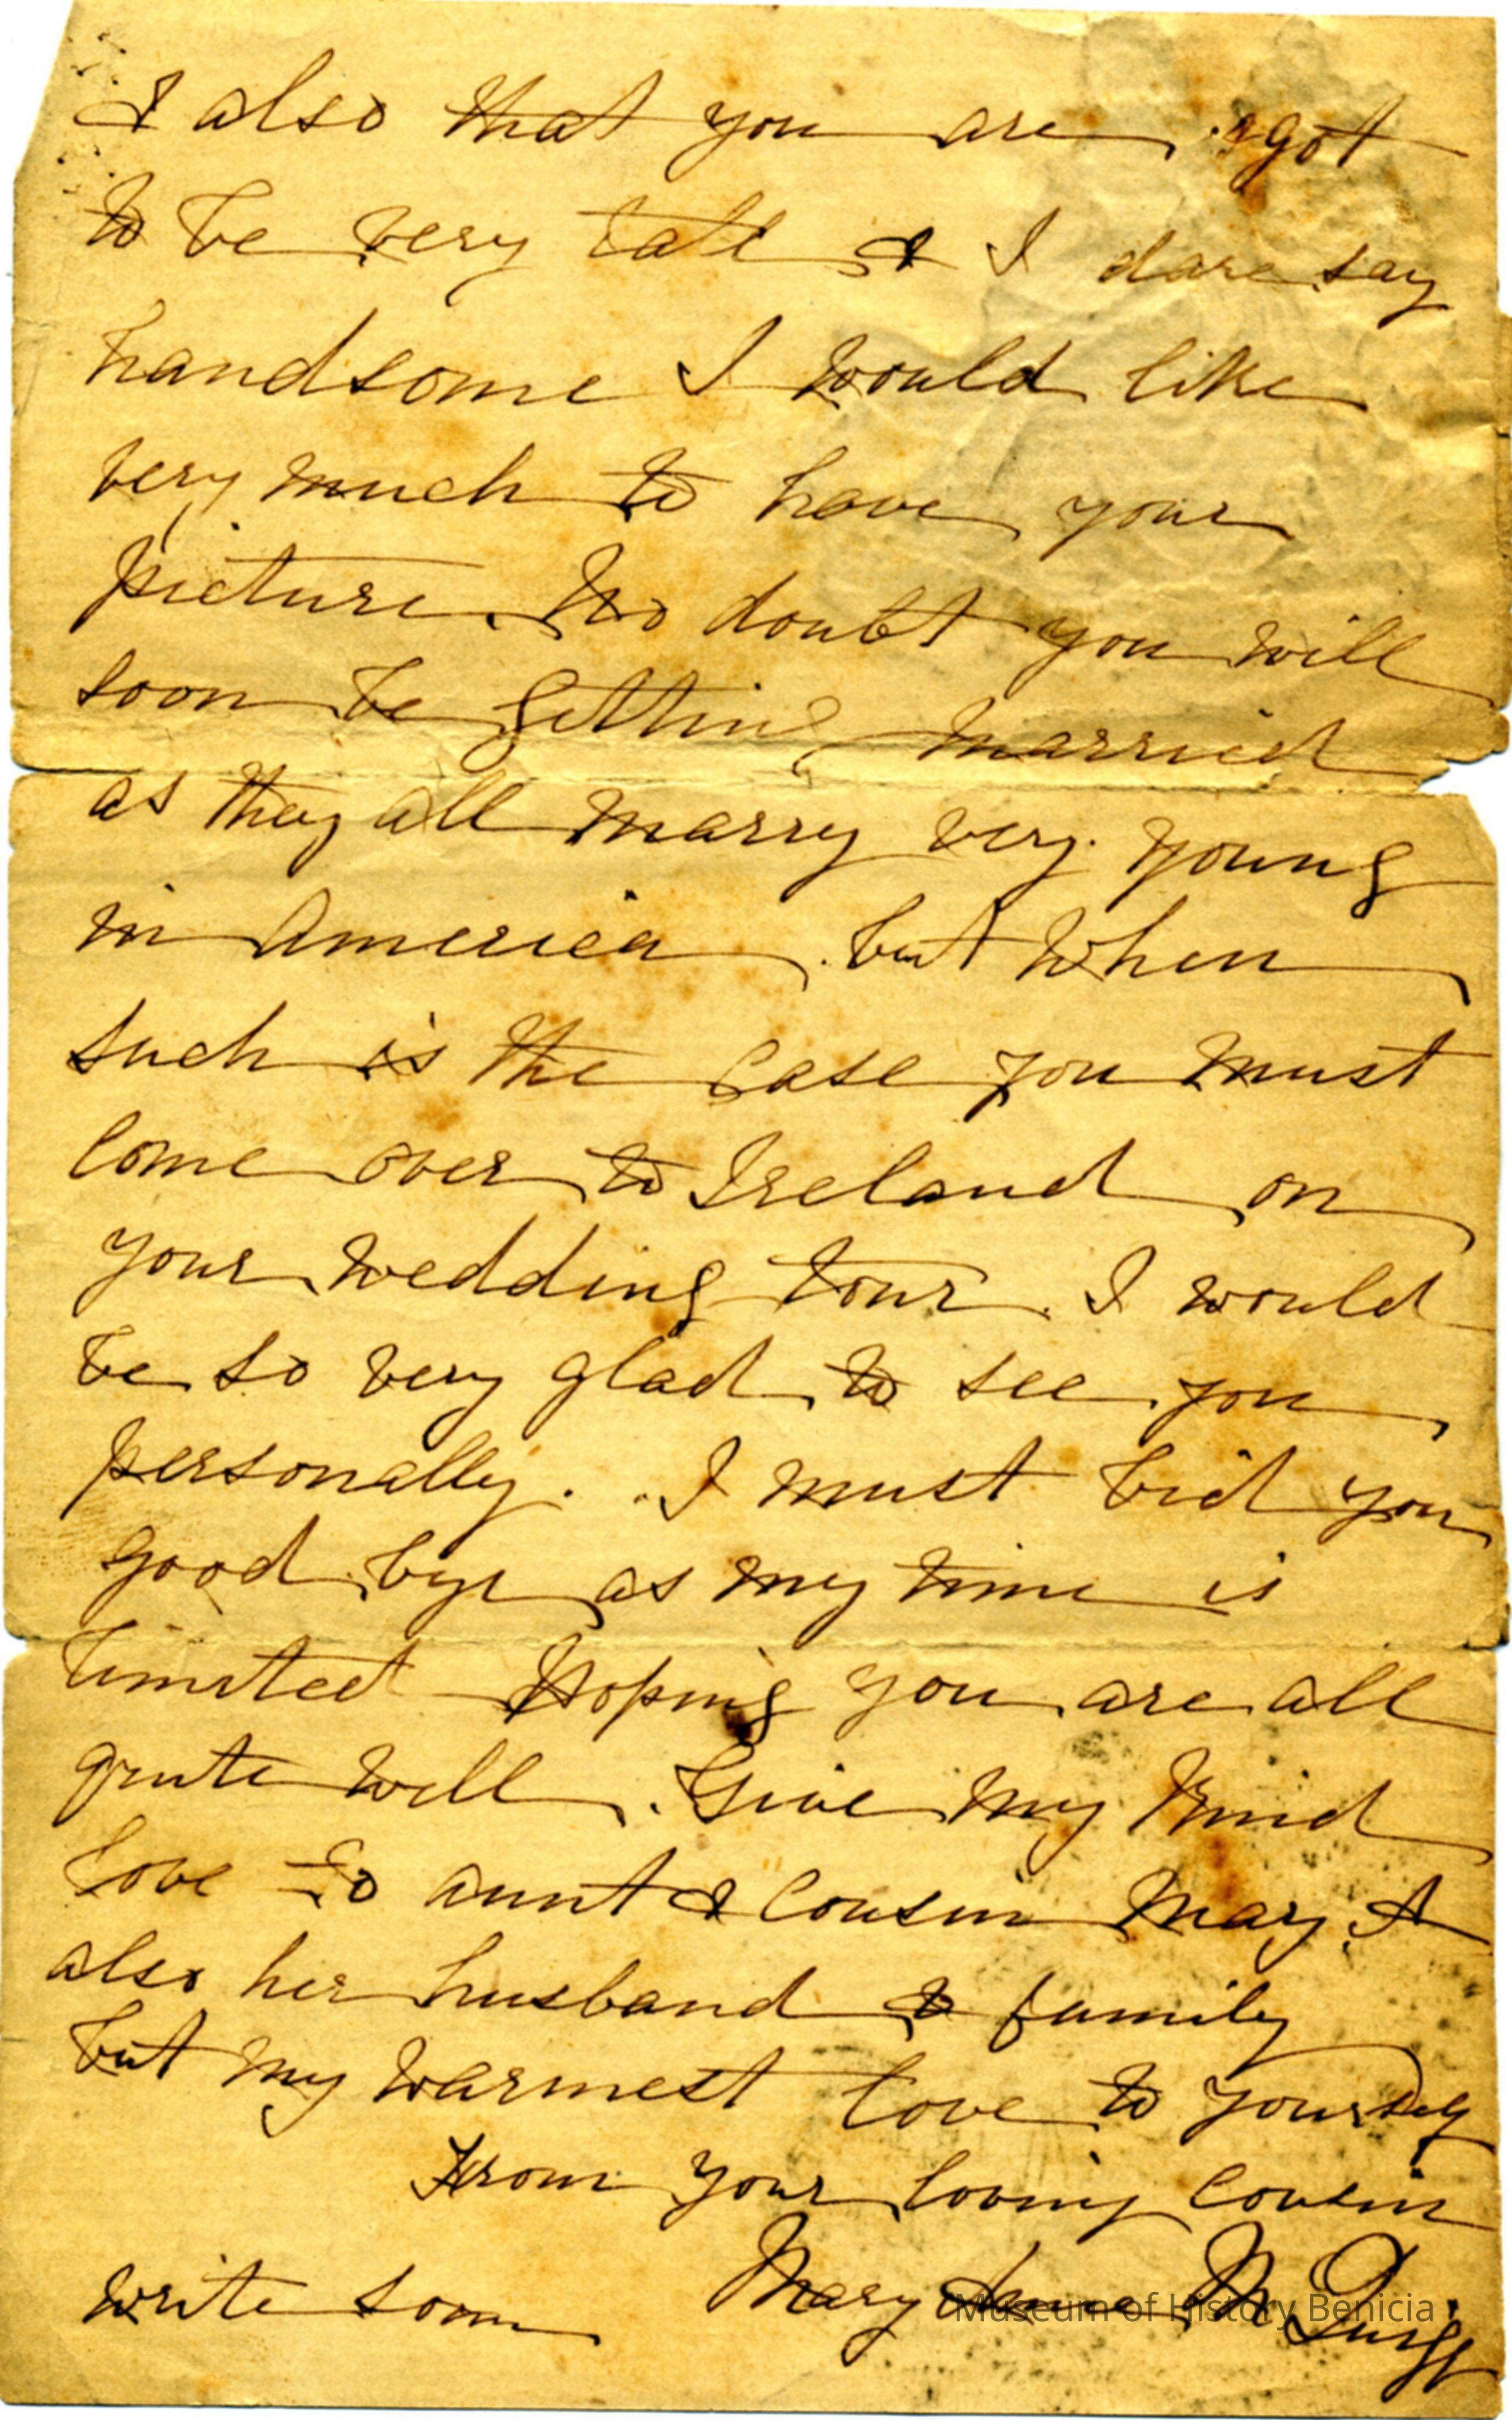 & also that you are got
to be very tall & I dare say
handsome I would like
very much to have your
picture. No doubt you will
soon be getting married
as they all marry very young
in America. but when
such is the case you must
come over to Ireland on
your wedding tour. I would
be so very glad to see you
personally. I must bid you
good bye as my time is
limited Hoping you are all
quite well. Give my kind
love to aunt & Cousin Mary &
also her husband & family
but my warmest love to yourself
From your loving Cousin
write soon Mary Anne McQuigg
Museum of History Benicia